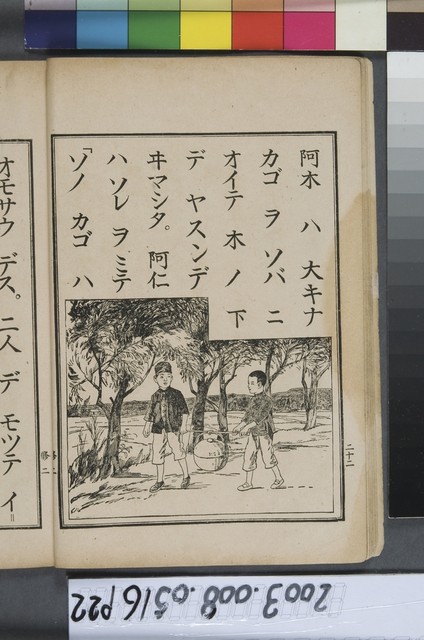 阿木 ハ 大キナ
カゴ ヲ ソバ ニ
オイテ 木 ノ 下
デ ヤスンデ
ヰマシタ。 阿仁
ハ ソレ ヲ ミテ
「ソノ カゴ ハ
オモサウ デス。二人 デ モツテ イ＝
二十二
2003.008.0516 P22